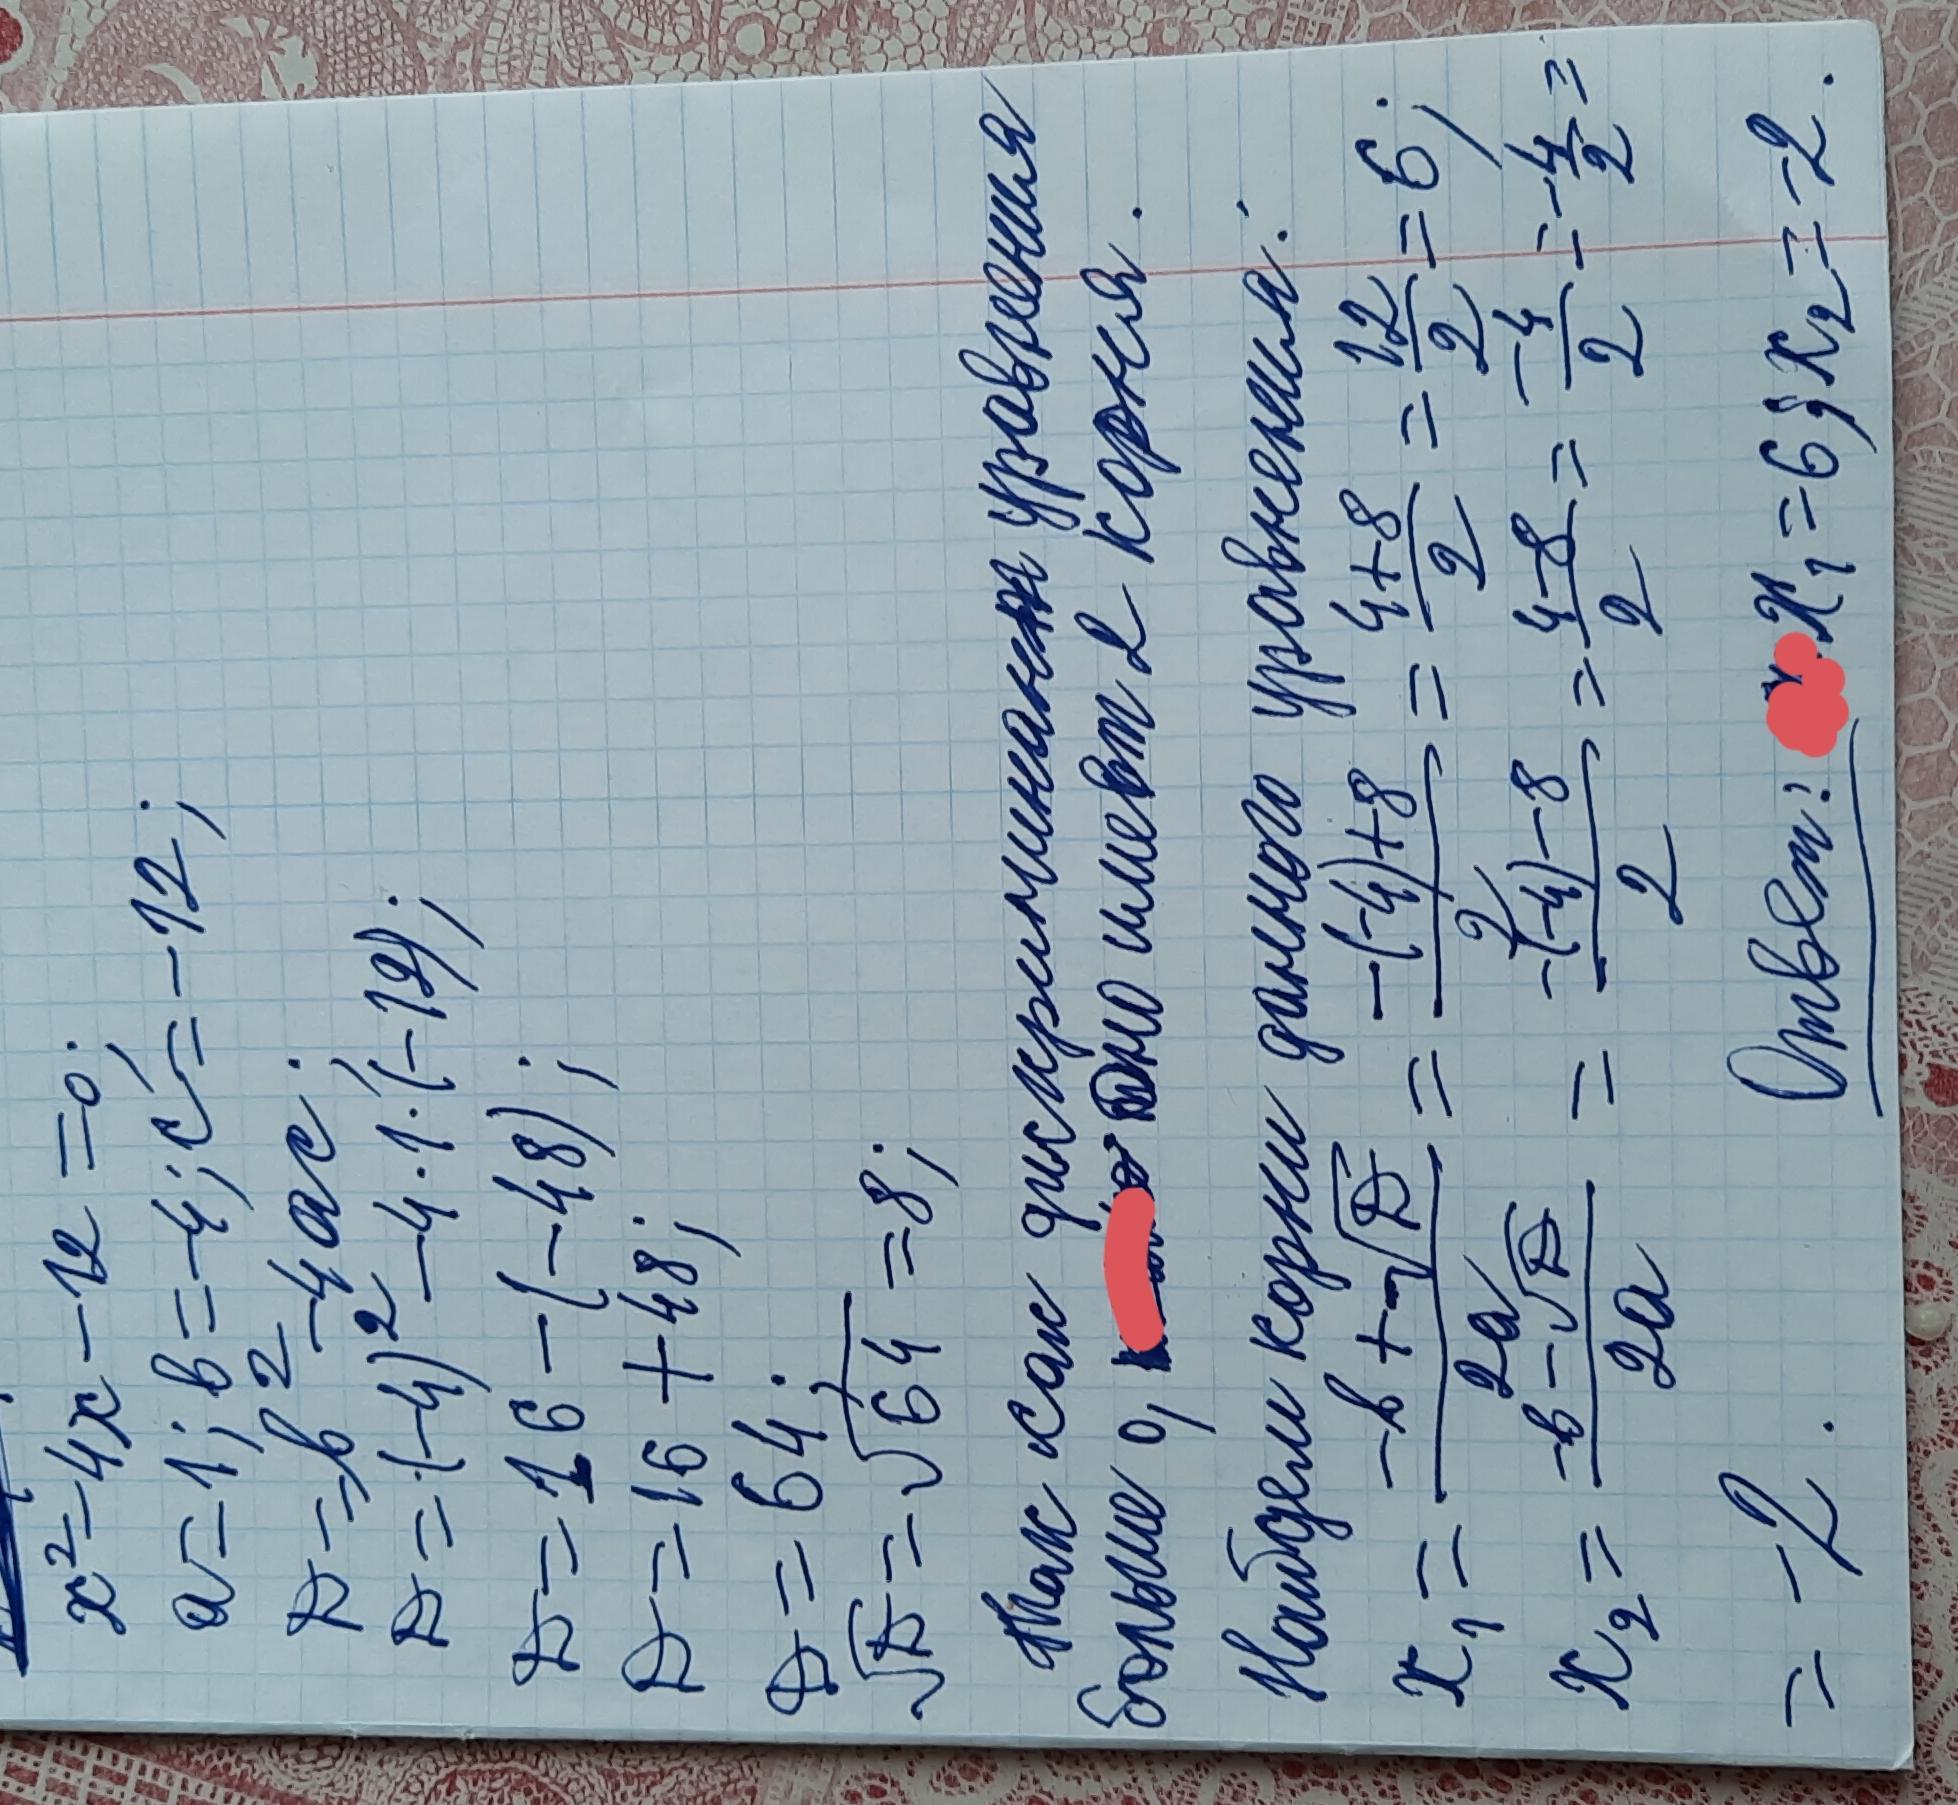 x² - 4x - 12 = 0;
a = 1; b = -4; c = -12;
D = b² - 4ac;
D = (-4)² - 4·1·(-12);
D = 16 - (-48);
D = 16 + 48;
D = 64;
√D = √64 = 8;
Так как дискриминант уравнения
больше 0, оно имеет 2 корня.
Найдем корни данного уравнения:
x₁ = (-b + √D)/2a = (-(-4)+8)/2 = (4+8)/2 = 12/2 = 6;
x₂ = (-b - √D)/2a = (-(-4)-8)/2 = (4-8)/2 = (-4)/2 = -4/2 =
= -2.
Ответ: x₁ = 6; x₂ = -2.